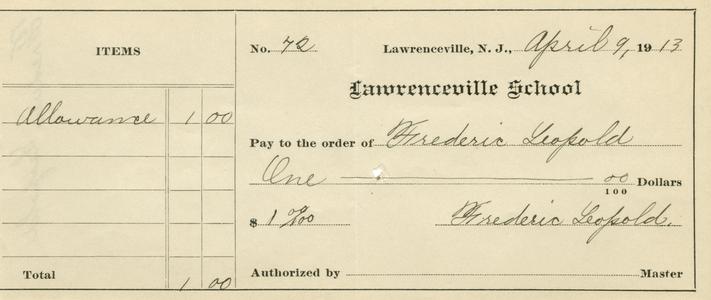 ITEMS
Allowance 1 00
Total 1 00
No. 72 Lawrenceville, N. J., April 9, 1913
Lawrenceville School
Pay to the order of Frederic Leopold
One 00/100 Dollars
$ 1 00/100 Frederic Leopold.
Authorized by Master